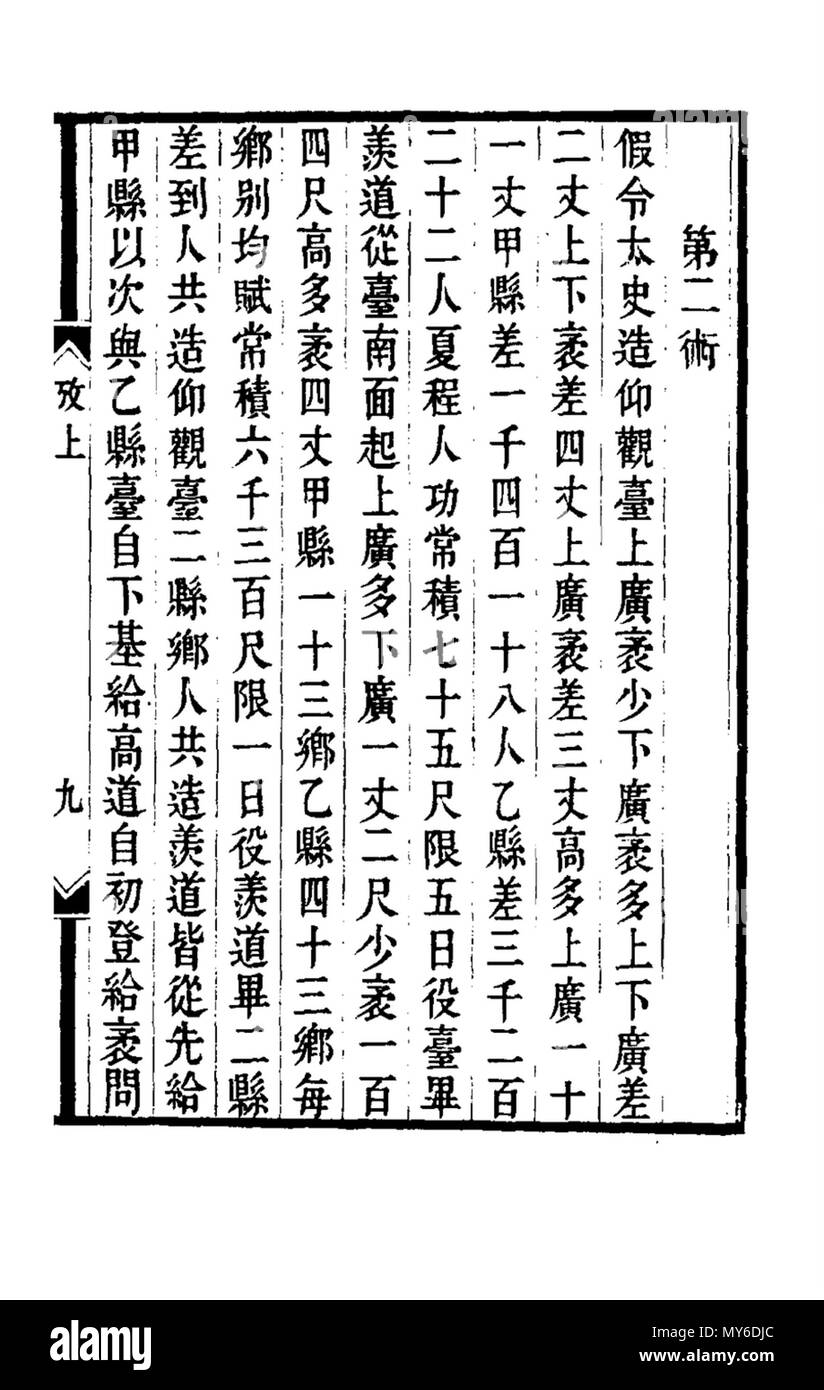 第二術
假令太史造仰觀臺上廣袤少下廣袤多上下廣差
二丈上下袤差四丈上廣袤差三丈高多上廣一十
一丈甲縣差一千四百一十八人乙縣差三千二百
二十二人夏程人功常積七十五尺限五日役臺畢
羨道從臺南面起上廣多下廣一丈二尺少袤一百
四尺高多袤四丈甲縣一十三鄉乙縣四十三鄉每
鄉别均賦常積六千三百尺限一日役羨道畢二縣
差到人共造仰觀臺二縣鄉人共造羨道皆從先給
甲縣以次與乙縣臺自下基給高道自初登給袤問
攷上
九
alamy
Image ID: MY6DJC
www.alamy.com